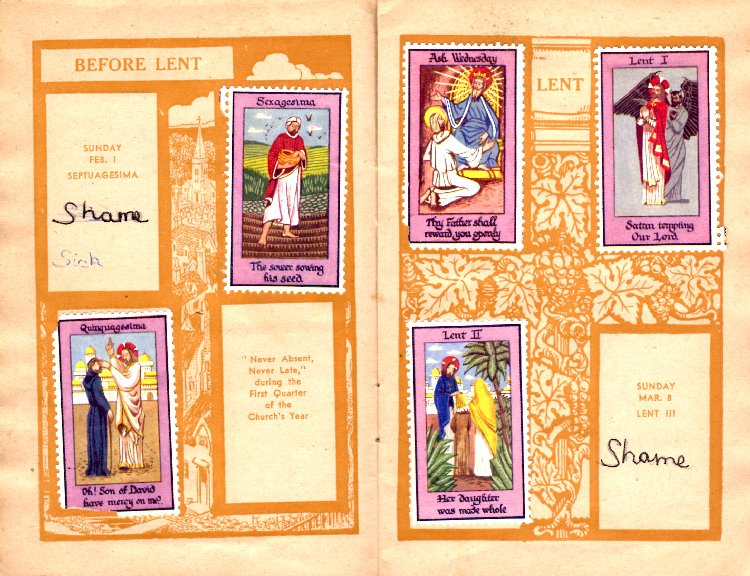 BEFORE LENT
SUNDAY
FEB. 1
SEPTUAGESIMA
Shame
Sick
Sexagesima
The sower sowing
his seed.
Quinquagesima
Oh! Son of David
have mercy on me?
"Never Absent,
Never Late,"
during the
First Quarter
of the
Church's Year
Ash Wednesday
Thy Father shall
reward you openly
LENT
Lent I
Satan tempting
Our Lord.
Lent II
Her daughter
was made whole
SUNDAY
MAR. 8
LENT III
Shame